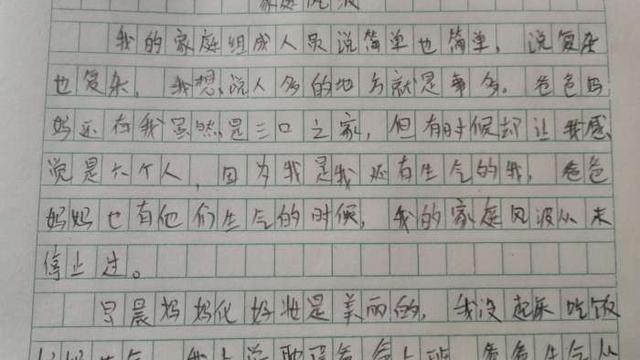 家庭风波
我的家庭组成人员说简单也简单,说复杂
也复杂,我想说人多的地方就是事多。爸爸妈
妈还有我虽然是三口之家,但有时候却让我感
觉是六个人,因为我是我还有生气的我,爸爸
妈妈也有他们生气的时候,我的家庭风波从未
停止过。
早晨妈妈化好妆是美丽的,我没起床吃饭